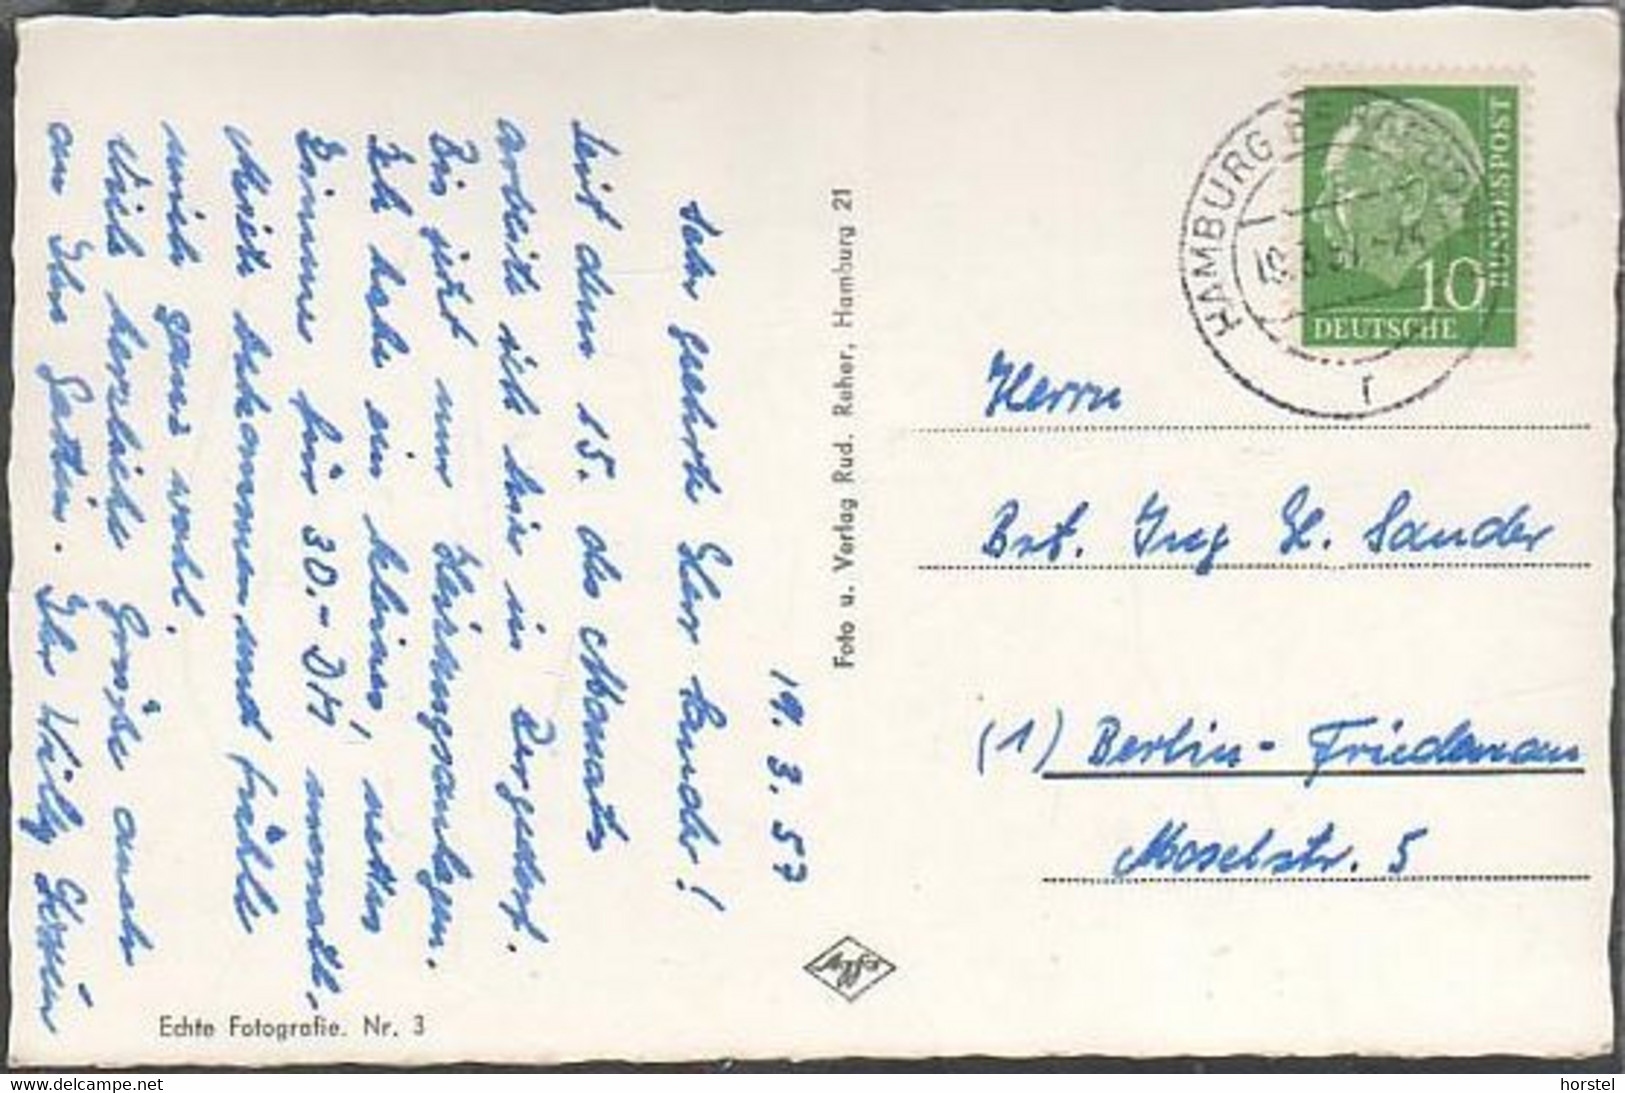 19. 3. 57
Sehr geehrter Herr Sander!
Seit dem 15. des Monats
arbeite ich hier in Bergedorf.
Bis jetzt nur Heizungsanlagen.
Ich habe ein kleines, nettes
Zimmer für 30.- DM monatl.
Miete bekommen, und fühle
mich ganz wohl.
Viele herzliche Grüße auch
an Ihre Gattin. Ihr Willy
Foto u. Verlag Rud. Reher, Hamburg 21
Echte Fotografie. Nr. 3
HAMBURG BERGEDORF
-24
r
DEUTSCHE
BUNDESPOST
10
Herrn
Ing H. Sander
(1) Berlin-Friedenau
Moselstr. 5
horstel
www.delcampe.net